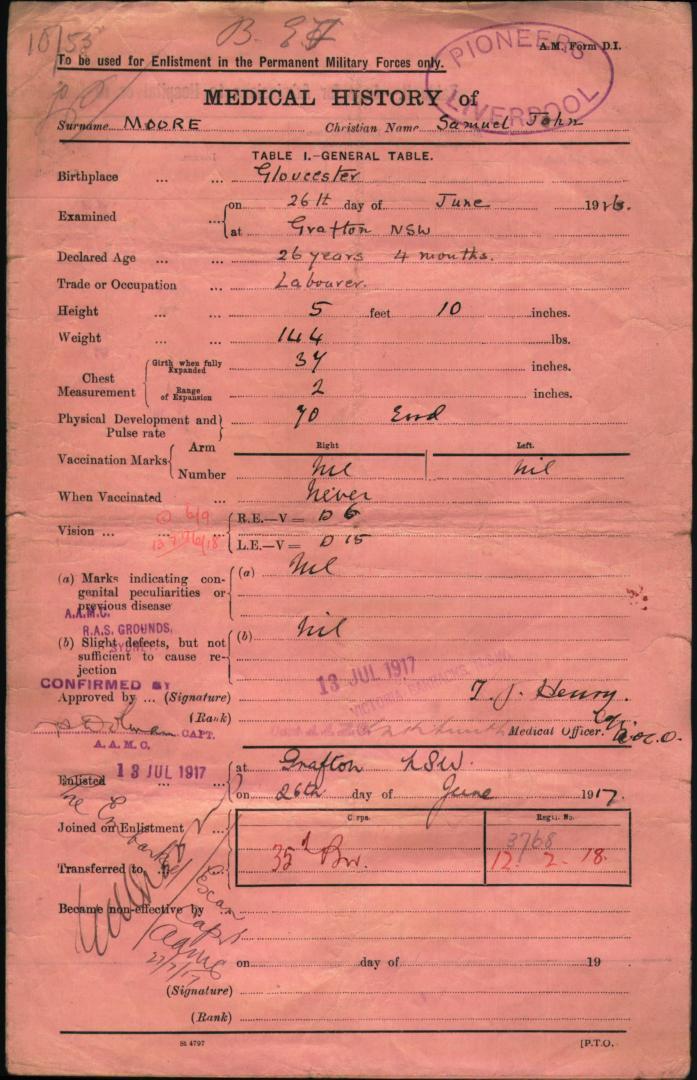 10/53
B. Ef
A.M. Form D.I.
To be used for Enlistment in the Permanent Military Forces only.
PIONEERS
LIVERPOOL
MEDICAL HISTORY of
Surname MOORE Christian Name Samuel John
TABLE I.—GENERAL TABLE.
Birthplace ... ... Gloucester
Examined ... on 26th day of June 19
at Grafton NSW
Declared Age ... ... 26 years 4 months.
Trade or Occupation ... Labourer.
Height ... ... 5 feet 10 inches.
Weight ... ... 144 lbs.
Chest Measurement Girth when fully Expanded 34 inches.
Range of Expansion 2 inches.
Physical Development and Pulse rate 70 Good
Right Left.
Vaccination Marks Arm
Number Nil Nil
When Vaccinated ... Never
Vision ... 6/9 R.E.—V = D 6
L.E.—V = D 15
(a) Marks indicating congenital peculiarities or previous disease (a) Nil
A.A.M.C.
R.A.S. GROUNDS,
SYDNEY
(b) Slight defects, but not sufficient to cause rejection (b) Nil
13 JUL 1917
VICTORIA BARRACKS
CONFIRMED BY
Approved by ... (Signature) T. J. Henry.
(Rank) Medical Officer.
CAPT.
A.A.M.C.
13 JUL 1917
Enlisted ... ... at Grafton NSW.
on 26th day of June 1917.
Corps. Regtl. No.
Joined on Enlistment ... 3768
35th Bn. 12. 2. 18.
Transferred to ...
Became non-effective by ...
Capt
AAMC
27/7/17
on day of 19
(Signature)
(Rank)
St 4797
[P.T.O.